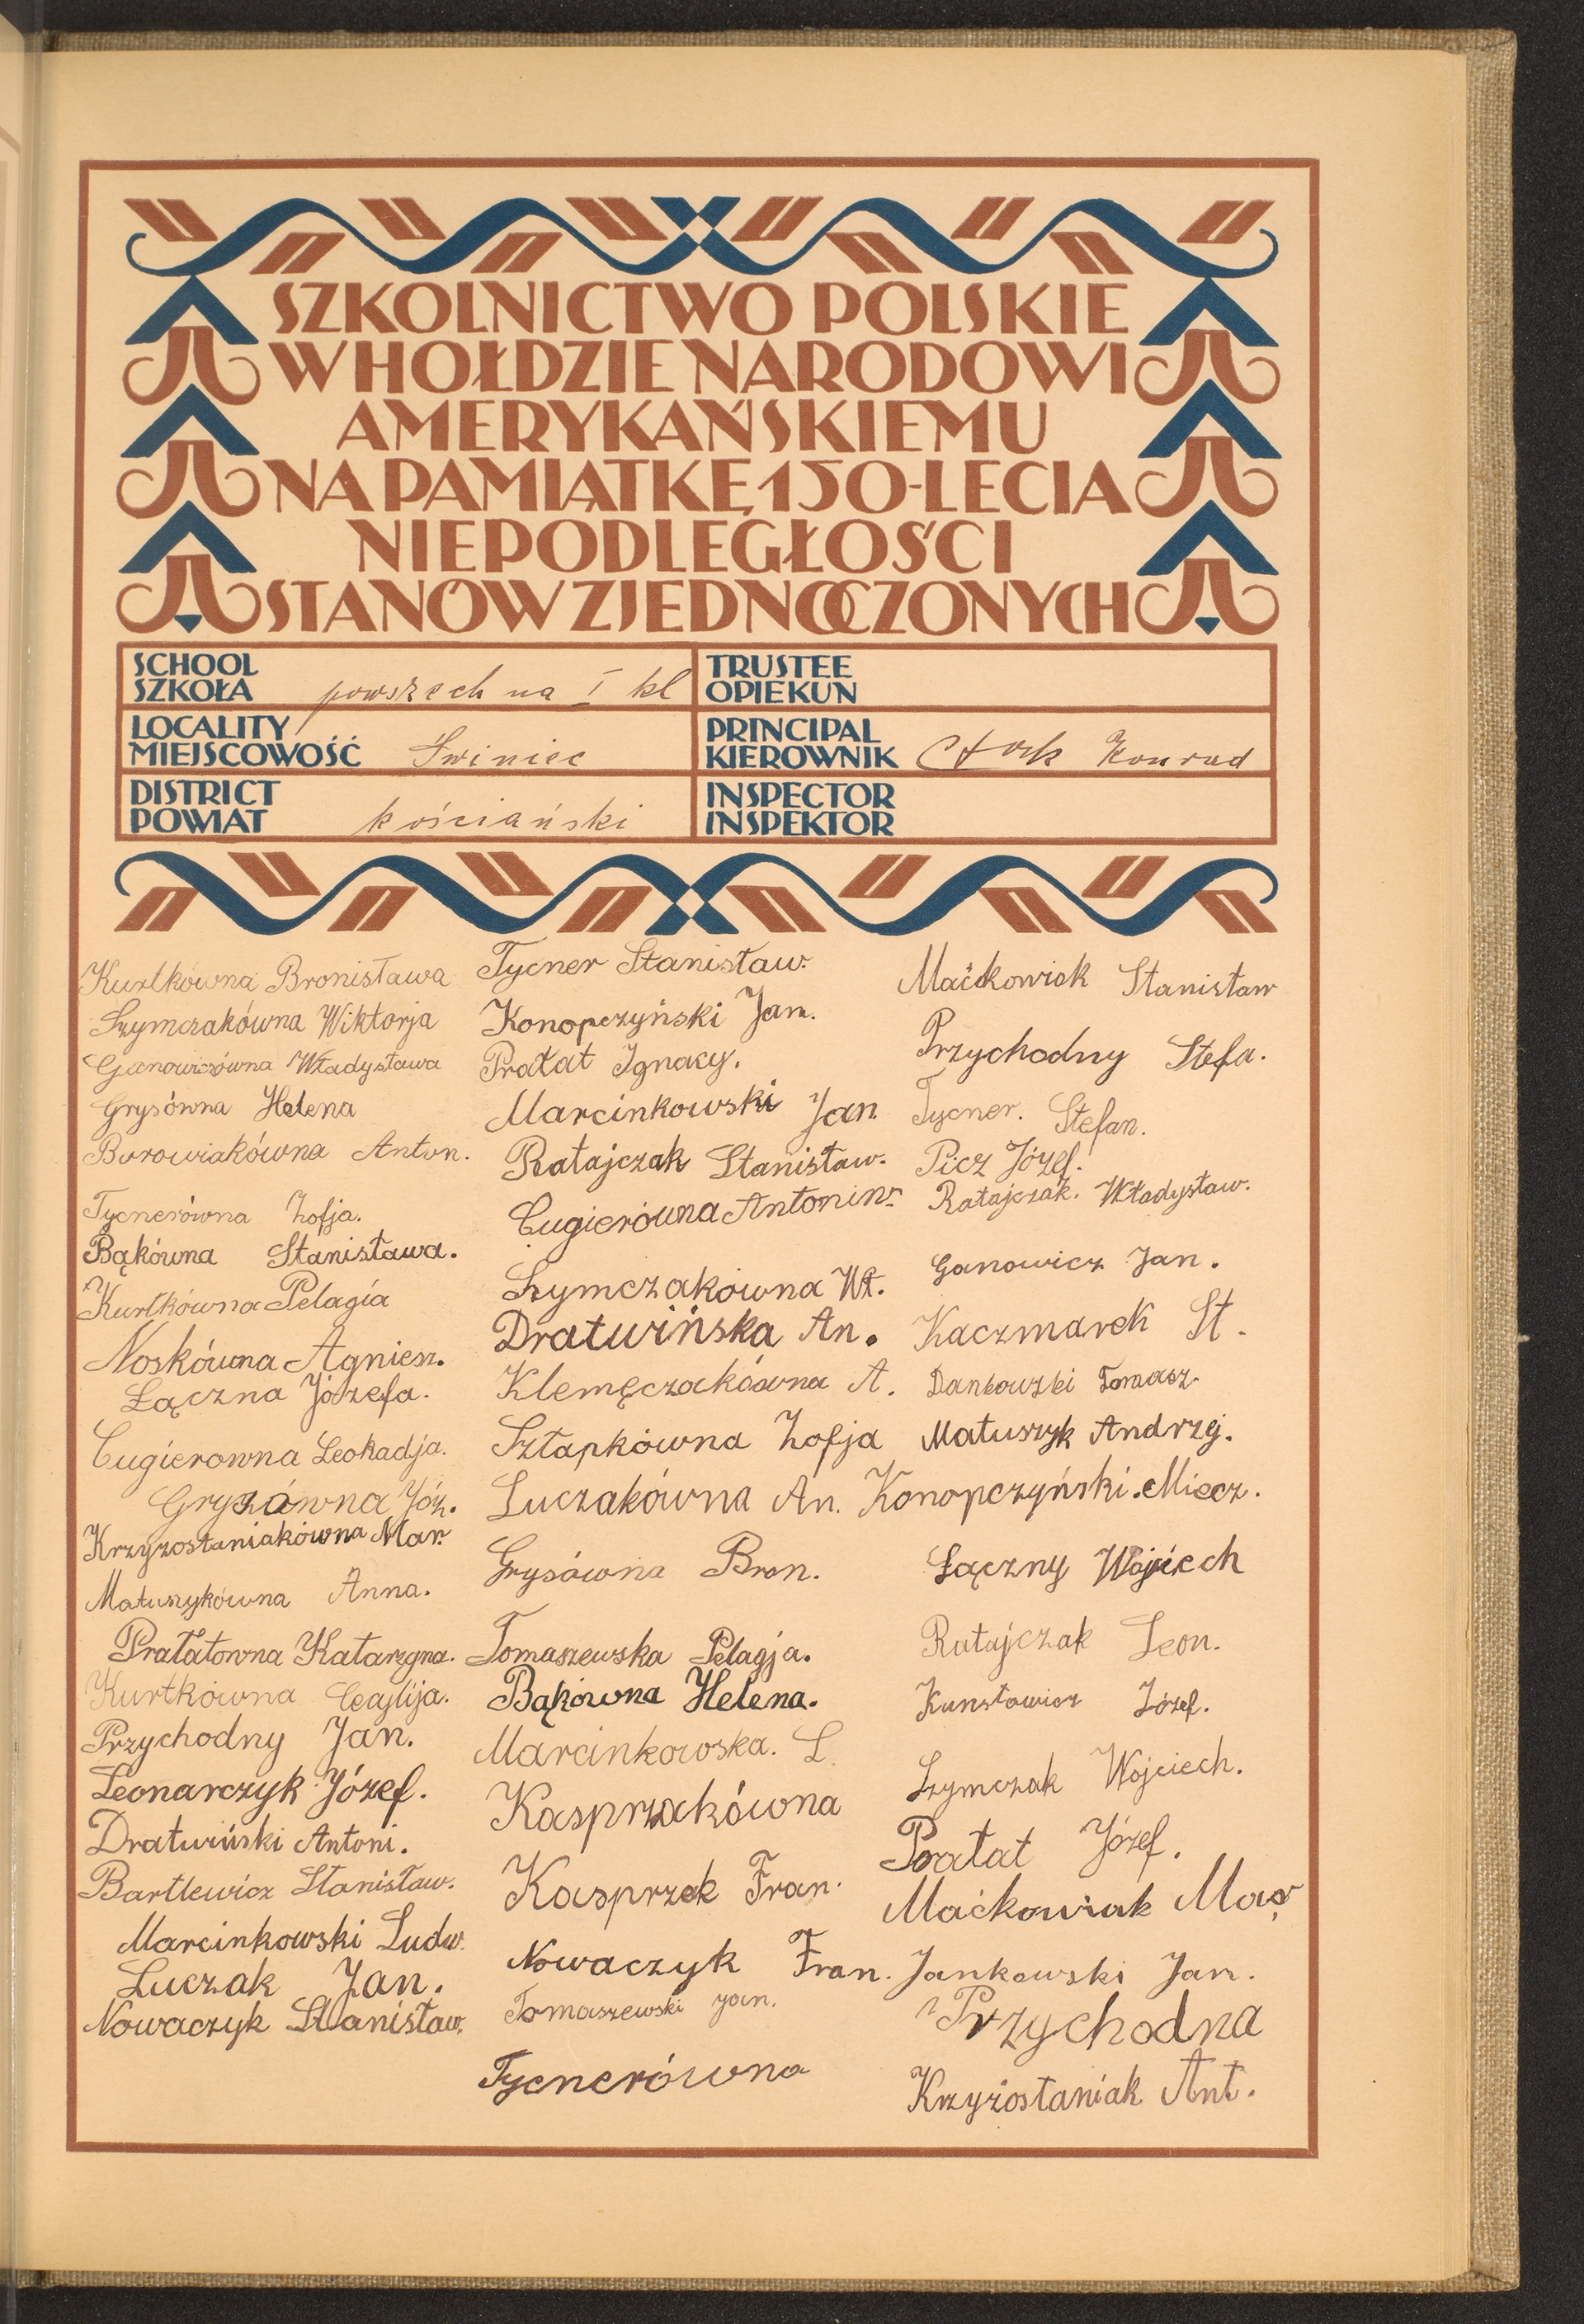 SZKOLNICTWO POLSKIE
W HOŁDZIE NARODOWI
AMERYKAŃSKIEMU
NA PAMIĄTKĘ 150-LECIA
NIEPODLEGŁOŚCI
STANÓW ZJEDNOCZONYCH
SCHOOL
SZKOŁA powszechna I kl
TRUSTEE
OPIEKUN
LOCALITY
MIEJSCOWOŚĆ Świniec
PRINCIPAL
KIEROWNIK Konrad
DISTRICT
POWIAT kościański
INSPECTOR
INSPEKTOR
Kurtkówna Bronisława
Szymczakówna Wiktorja
Ganowiczówna Władysława
Grysówna Helena
Borowiakówna Anton.
Tycnerówna Zofja.
Bąkówna Stanisława.
Kurtkówna Pelagia
Noskówna Agniesz.
Łączna Józefa.
Cugierowna Leokadja.
Gryzówna Józ.
Krzyzostaniakówna Mar.
Matuszykówna Anna.
Prałatowna Katarzyna.
Kurtkówna Ceajlija.
Przychodny Jan.
Leonarczyk Józef.
Dratwiński Antoni.
Bartlewicz Stanisław.
Marcinkowski Ludw.
Luczak Jan.
Nowaczyk Stanisław.
Tycner Stanisław.
Konopczyński Jan.
Prałat Ignacy.
Marcinkowski Jan
Ratajczak Stanisław.
Cugierówna Antonin.
Szymczakówna Wł.
Dratwińska An.
Klemęczakówna A.
Sztapkówna Zofja
Luczakówna An.
Grysówna Bron.
Tomaszewska Pelagja.
Bąkówna Helena.
Marcinkowska. L.
Kasprzakówna
Kasprzak Fran.
Nowaczyk Fran.
Tomaszewski Jan.
Tycnerówna
Maćkowiak Stanisław
Przychodny Stefa.
Tycner. Stefan.
Picz Józef.
Ratajczak. Władysław.
Ganowicz Jan.
Kaczmarek St.
Dankowski Tomasz.
Matuszyk Andrzej.
Konopczyński.Miecz.
Łączny Wojciech
Ratajczak Leon.
Kunstowicz Józef.
Szymczak Wojciech.
Prałat Józef.
Maćkowiak Mar
Jankowski Jan.
Przychodna
Krzyżostaniak Ant.